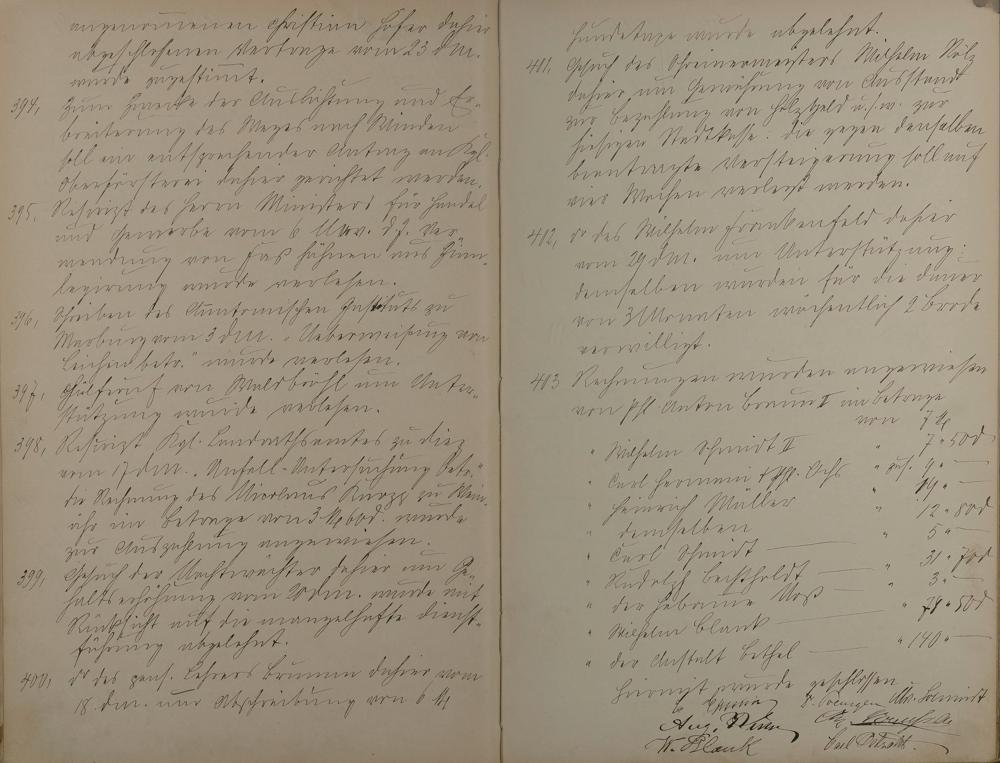 angenommenen Christian Hofer dahier
abgeschlossenen Vertrage vom 23 d M.
wurde zugestimt.
394, Zum Zwecke der Auslichtung und Er-
breiterung des Weges nach Winden
soll ein entsprechender Antrag an Kgl.
Oberförsterei dahier gerichtet werden.
395, Rescript des Herrn Ministers für Handel
und Gewerbe vom 6 Nov. d. J. Ver-
wendung von Fashähnen aus Zinn-
legirung wurde verlesen.
396, Schreiben des Anatomischen Instituts zu
Marburg vom 3 d M. „Ueberweisung von
Leichen betr." wurde verlesen.
397, Hülferuf von Waldbröhl um Unter-
stützung wurde verlesen.
398, Rescript Kgl. Landrathsamtes zu Diez
vom 17 d M. „Unfall-Untersuchung betr."
die Rechnung des Nicolaus Kurzz zu Wein-
ähr im Betrage von 3 M 60 d. wurde
zur Auszahlung angewiesen.
399, Gesuch der Nachtwächter dahier um Ge-
haltserhöhung vom 20 d M. wurde mit
Rücksicht auf die mangelhafte Dienst-
führung abgelehnt.
400, do des pens. Lehrers Brumm dahier vom
18 d M. um Abschreibung von 6 M
Hundetaxe wurde abgelehnt.
401, Gesuch des Schreinermeisters Wilhelm
dahier um Gewährung von Ausstand
zur Bezahlung von Holzgeld u. s. w. zur
hiesigen Stadtkasse: die gegen denselben
beantragte Versteigerung soll auf
vier Wochen verlegt werden.
402, do des Wilhelm Frankenfeld dahier
vom 29 d M. um Unterstützung:
demselben wurden für die Dauer
von 3 Monaten wöchentlich 2 Brode
verwilligt.
403 Rechnungen wurden angewiesen
von Phl Anton Braun II im Betrage
von 7 M
" Wilhelm Schmidt II " 7 " 50 d
" Carl Hermann & Phl. Ochs " 9 " —
" Heinrich Müller " 14 " —
" demselben " 12 " 80 d
" Carl Schmidt — " 5 " —
" Rudolph Berthholdt — " 31 " 70 d
" der Hebamme — " 3 " —
" Wilhelm Blank — " 74 " 50 d
" der Anstalt Bethel — " 140 " —
Hiermit wurde geschlossen
Schmidt
Aug.
W. Blank Carl